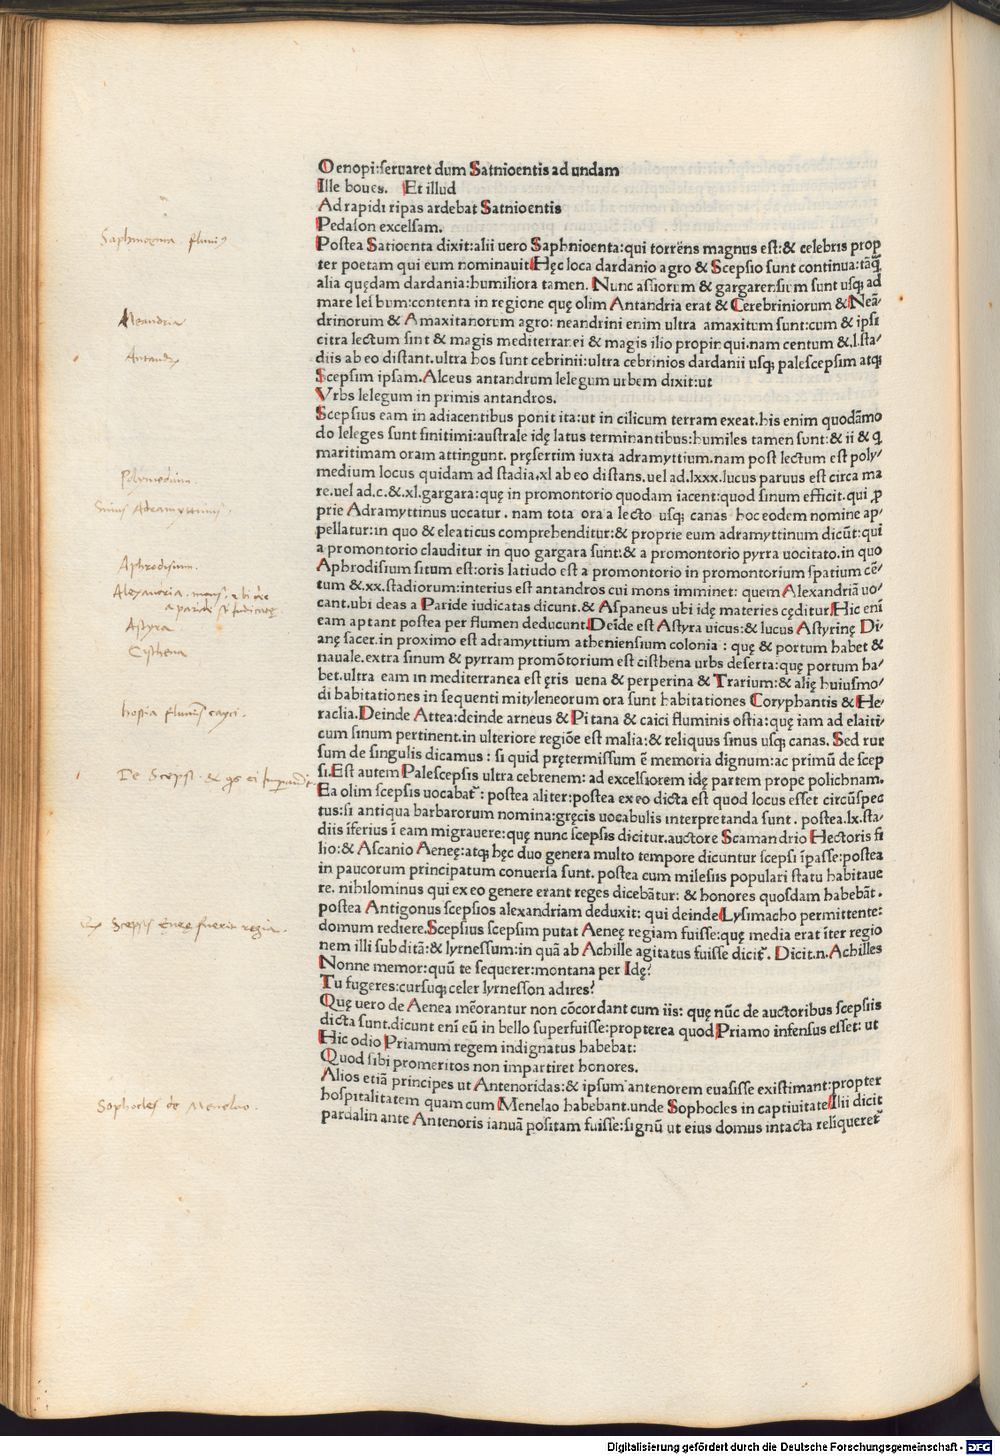 Oenopi:seruaret dum Satnioentis ad undam
Ille boues. Et illud
Ad rapidi ripas ardebat Satnioentis
Pedason excelsam.
Postea Satioenta dixit:alii uero Saphnioenta:qui torrēns magnus est:& celebris prop
ter poetam qui eum nominauit Hęc loca dardanio agro & Scepsio sunt continua:tāq̄
alia quędam dardania:humiliora tamen. Nunc assiorum & gargarensium sunt usq; ad
mare lesbium:contenta in regione quę olim Antandria erat & Cerebriniorum & Neā/
drinorum & Amaxitanorum agro: neandrini enim ultra amaxitum sunt:cum & ipsi
citra lectum sint & magis mediterranei & magis ilio propinqui.nam centum &.l.sta/
diis ab eo distant.ultra hos sunt cebrinii:ultra cebrinios dardanii usq; palescepsim atq;
Scepsim ipsam.Alceus antandrum lelegum urbem dixit:ut
Vrbs lelegum in primis antandros.
Scepsius eam in adiacentibus ponit ita:ut in cilicum terram exeat.his enim quodāmo
do leleges sunt finitimi:australe idę latus terminantibus:humiles tamen sunt:& ii & q
maritimam oram attingunt. pręsertim iuxta adramyttium.nam post lectum est poly/
medium locus quidam ad stadia.xl ab eo distans.uel ad.lxxx.lucus paruus est circa ma
re.uel ad.c.&.xl.gargara:quę in promontorio quodam iacent:quod sinum efficit.qui ꝓ
prie Adramyttinus uocatur. nam tota ora a lecto usq; canas hoc eodem nomine ap/
pellatur:in quo & eleaticus comprehenditur:& proprie eum adramyttinum dicūt:qui
a promontorio clauditur in quo gargara sunt:& a promontorio pyrra uocitato.in quo
Aphrodisium situm est:oris latiudo est a promontorio in promontorium spatium cē/
tum &.xx.stadiorum:interius est antandros cui mons imminet: quem Alexandriā uo/
cant.ubi deas a Paride iudicatas dicunt.& Aspaneus ubi idę materies cęditur Hic enī
eam aptant postea per flumen deducunt.Deīde est Astyra uicus:& lucus Astyrinę Di/
anę sacer.in proximo est adramyttium atheniensium colonia : quę & portum habet &
nauale.extra sinum & pyrram promōtorium est cisthena urbs deserta:quę portum ha/
bet.ultra eam in mediterranea est ęris uena & perperina & Trarium:& alię huiusmo/
di habitationes in sequenti mityleneorum ora sunt habitationes Coryphantis & He/
raclia.Deinde Attea:deinde arneus & Pitana & caici fluminis ostia:quę iam ad elaiti/
cum sinum pertinent.in ulteriore regiōe est malia:& reliquus sinus usq; canas. Sed rur
sum de singulis dicamus : si quid prętermissum ē memoria dignum:ac primū de scep
si.Est autem Palescepsis ultra cebrenem: ad excelsiorem idę partem prope polichnam.
Ea olim scepsis uocabat᷑ : postea aliter:postea ex eo dicta est quod locus esset circūspec
tus:si antiqua barbarorum nomina:gręcis uocabulis interpretanda sunt. postea.lx.sta/
diis īferius ī eam migrauere:quę nunc scepsis dicitur.auctore Scamandrio Hectoris fi
lio:& Ascanio Aeneę:atq; hęc duo genera multo tempore dicuntur scepsi īpasse:postea
in paucorum principatum conuersa sunt. postea cum milesiis populari statu habitaue
re. nihilominus qui ex eo genere erant reges dicebātur: & honores quosdam habebāt.
postea Antigonus scepsios alexandriam deduxit: qui deinde Lysimacho permittente:
domum rediere.Scepsius scepsim putat Aeneę regiam fuisse:quę media erat īter regio
nem illi subditā:& lyrnessum:in quā ab Achille agitatus fuisse dicit᷑. Dicit.n.Achilles
Nonne memor:quū te sequerer:montana per Idę?
Tu fugeres:cursuq; celer lyrnesson adires?
Quę uero de Aenea mēorantur non cōcordant cum iis: quę nūc de auctoribus scepsiis
dicta sunt.dicunt enī eū in bello superfuisse:propterea quod Priamo infensus esset: ut
Hic odio Priamum regem indignatus habebat:
Quod sibi promeritos non impartiret honores.
Alios etiā principes ut Antenoridas:& ipsum antenorem euasisse existimant:propter
hospitalitatem quam cum Menelao habebant.unde Sophocles in captiuitate Ilii dicit
pardalin ante Antenoris ianuā positam fuisse:signū ut eius domus intacta reliqueret᷑
Saphnioenta. fluuiꝰ
Neandria
Antandrꝰ
Polymedium.
Sinus Adramyttinus.
Aphrodisium.
Alexandria. mons. ubi
a paride
Astyra
Cisthena
hostia fluuiī cayci.
De Scepsi. &
Scepsis Eneę fuerit regia.
Sophocles de Menelao.
Digitalisierung gefördert durch die Deutsche Forschungsgemeinschaft - DFG